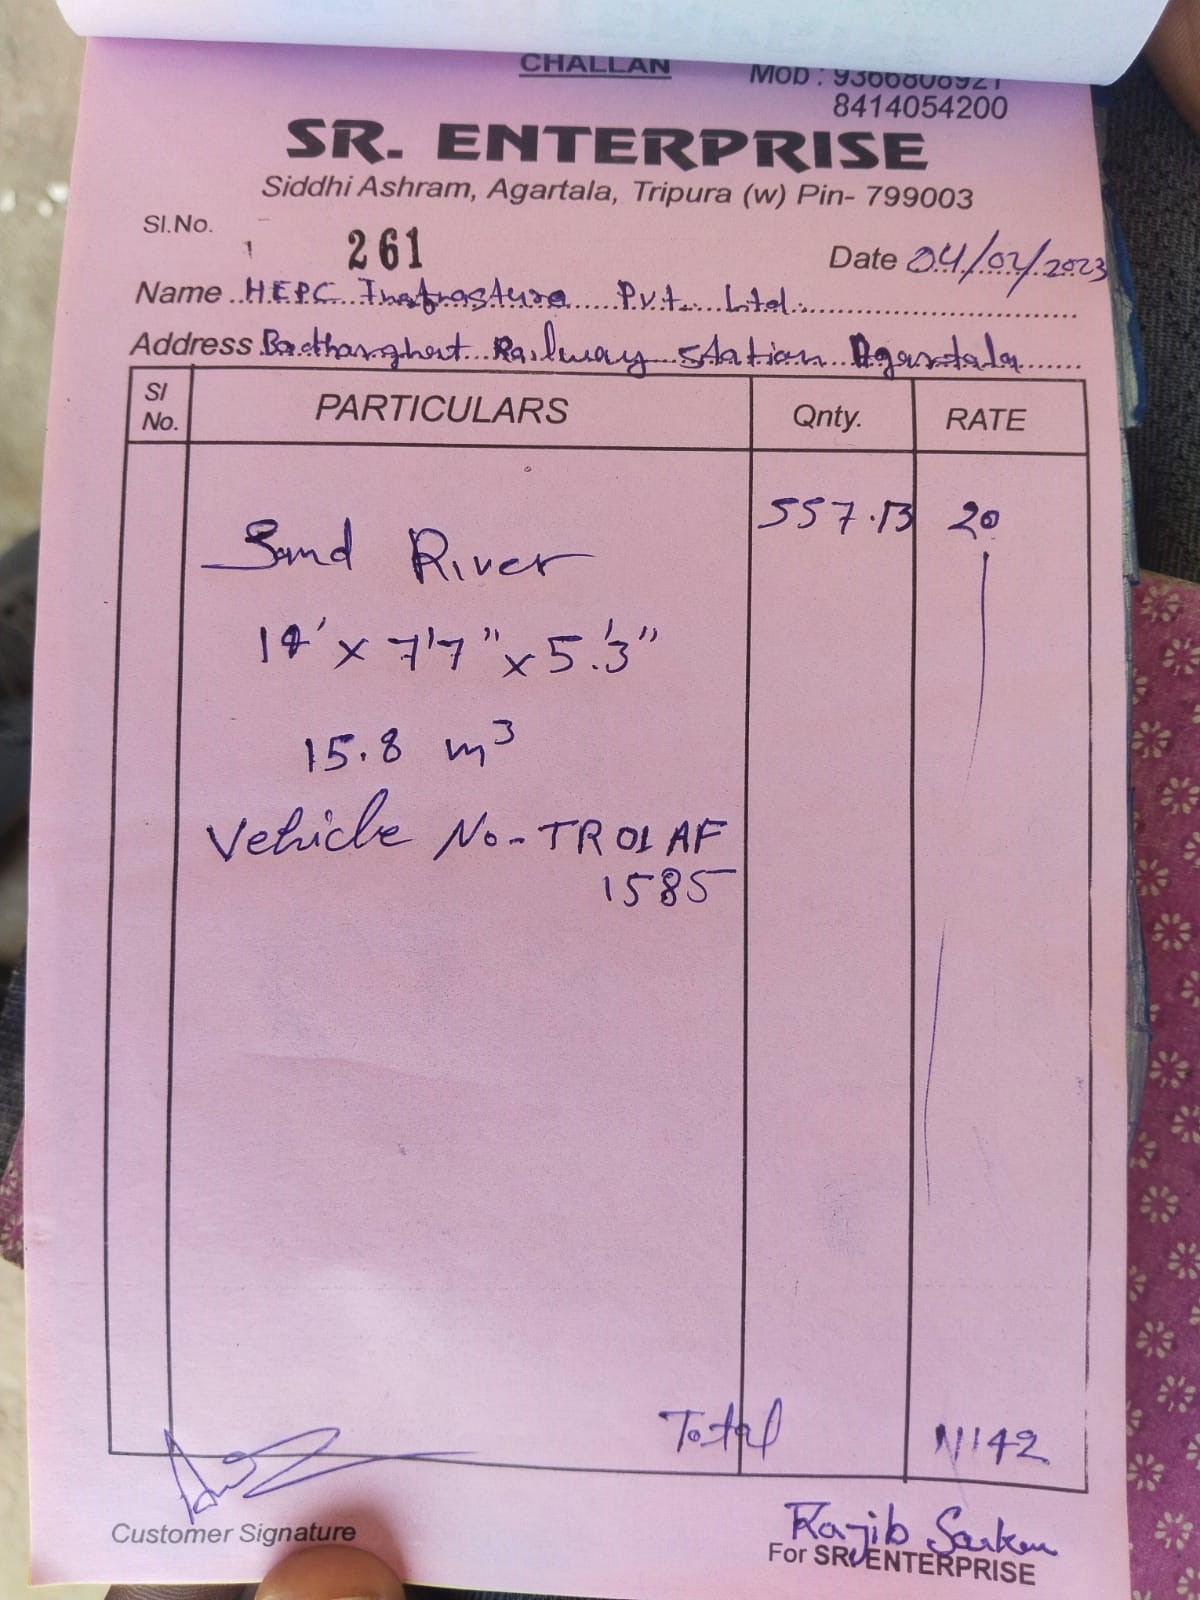 CHALLAN
Mob : 9366808921
8414054200
SR. ENTERPRISE
Siddhi Ashram, Agartala, Tripura (w) Pin- 799003
Sl.No. 261
Date 04/02/2023
Name HEPC Infrasture Pvt. Ltd.
Address Badharghat Railway station Agartala
Sl No. PARTICULARS Qnty. RATE
Sand River 557.13 20
14' x 7'7" x 5.'3"
15.8 m³
Vehicle No-TR01AF
1585
Total 11142
Customer Signature
Rajib Sarkar
For SR. ENTERPRISE